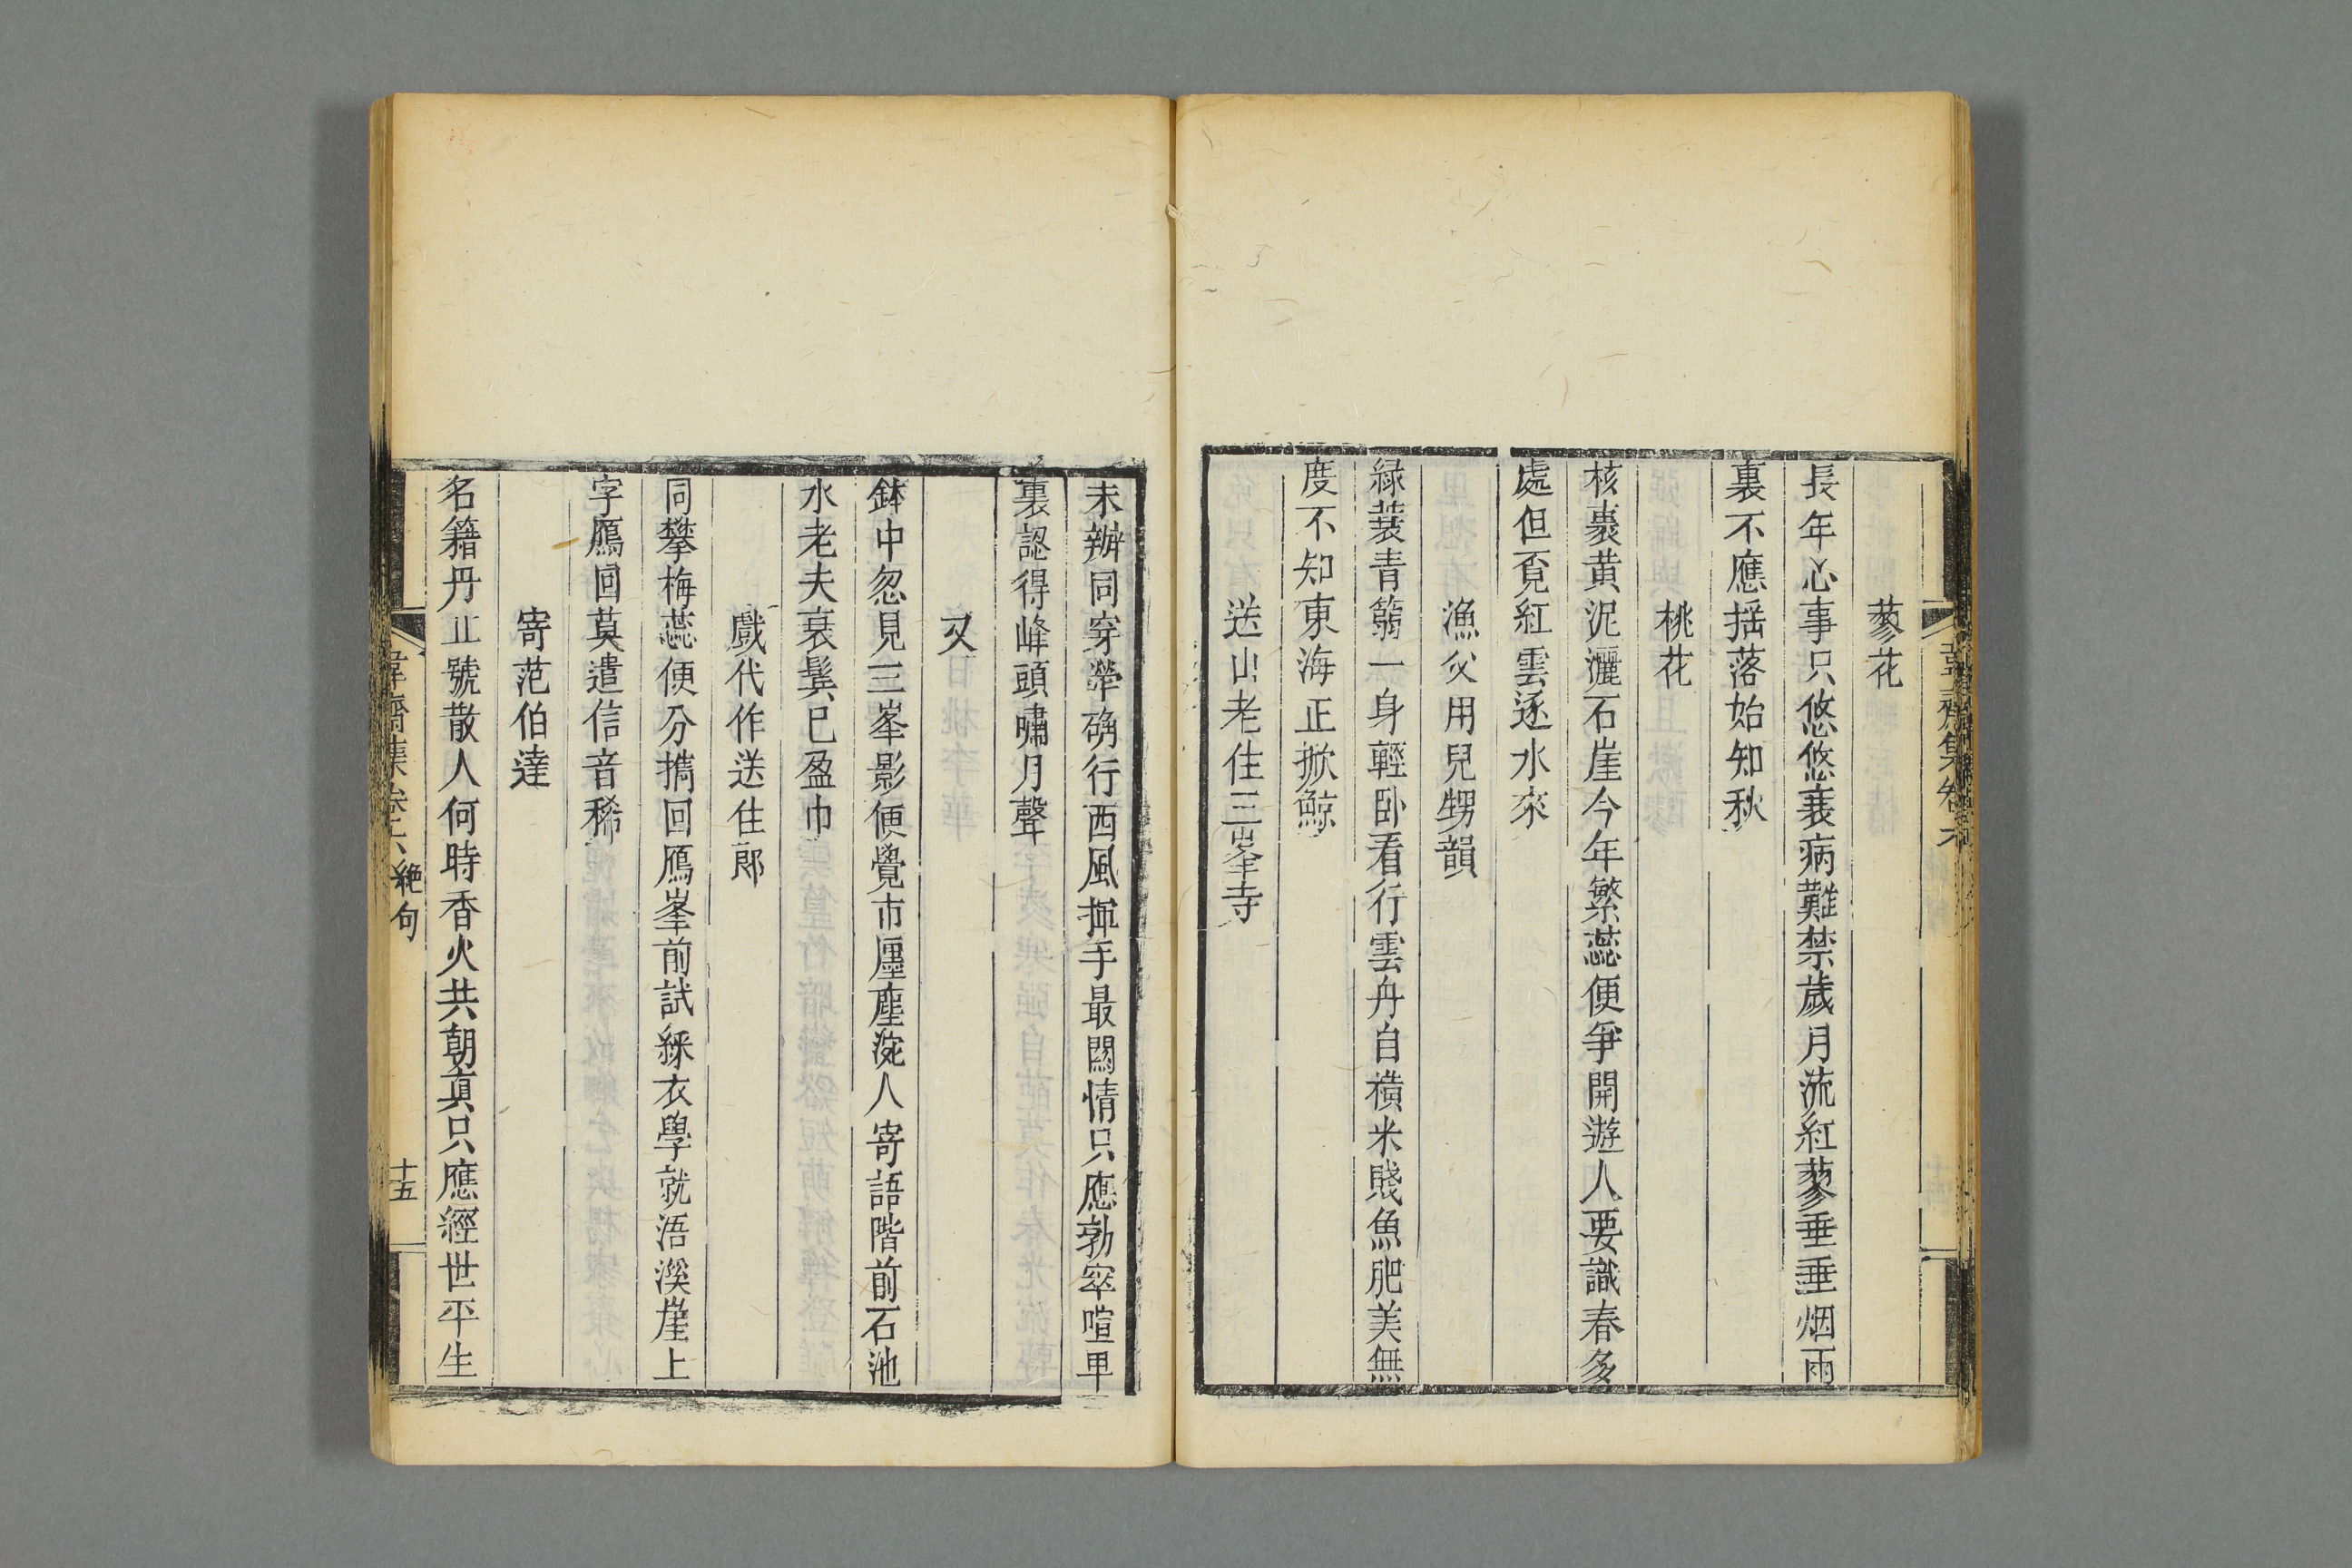 蓼花
長年心事只悠悠衰病難禁歲月流紅蓼垂垂烟雨
裏不應揺落始知秋
桃花
核裹黄泥灑石崖今年繁蕊便爭開遊人要識春多
處但覓紅雲逐水來
漁父用兒甥韻
緑蓑青篛一身輕卧看行雲舟自橫米賤魚肥美無
度不知東海正掀鯨
送山老住三峯寺
未辦同穿犖确行西風揮手最關情只應勃窣喧卑
裏認得峰頭嘯月聲
又
鉢中忽見三峯影便覺市廛塵涴人寄語階前石池
水老夫衰鬂已盈巾
戲代作送住郎
同攀梅蕊便分擕回鴈峯前試綵衣學就浯溪崖上
字鴈回莫遣信音稀
寄范伯達
名籍丹丘號散人何時香火共朝真只應經世平生
韋齋集卷六 絶句
十五